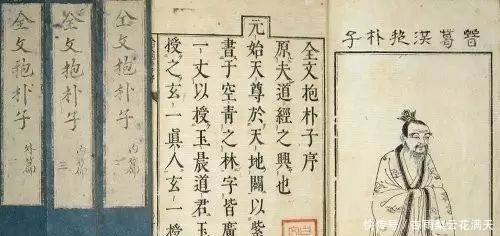 晉葛洪抱朴子
全文抱朴子序
原夫道經之興也
元始天尊於天地闢以紫
書于空青之林字皆廣
一丈以授玉晨道君玉
授之玄一眞人玄一
全文抱朴子
内篇
全文抱朴子
内篇
三
全文抱朴子
外篇
快传号/谷雨梨云花满天